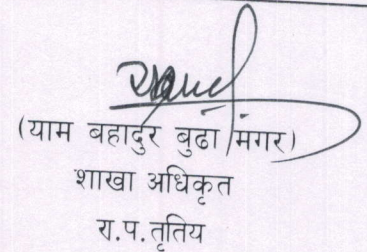 (याम बहादुर बुढा मगर)
शाखा अधिकृत
रा.प.तृतिय